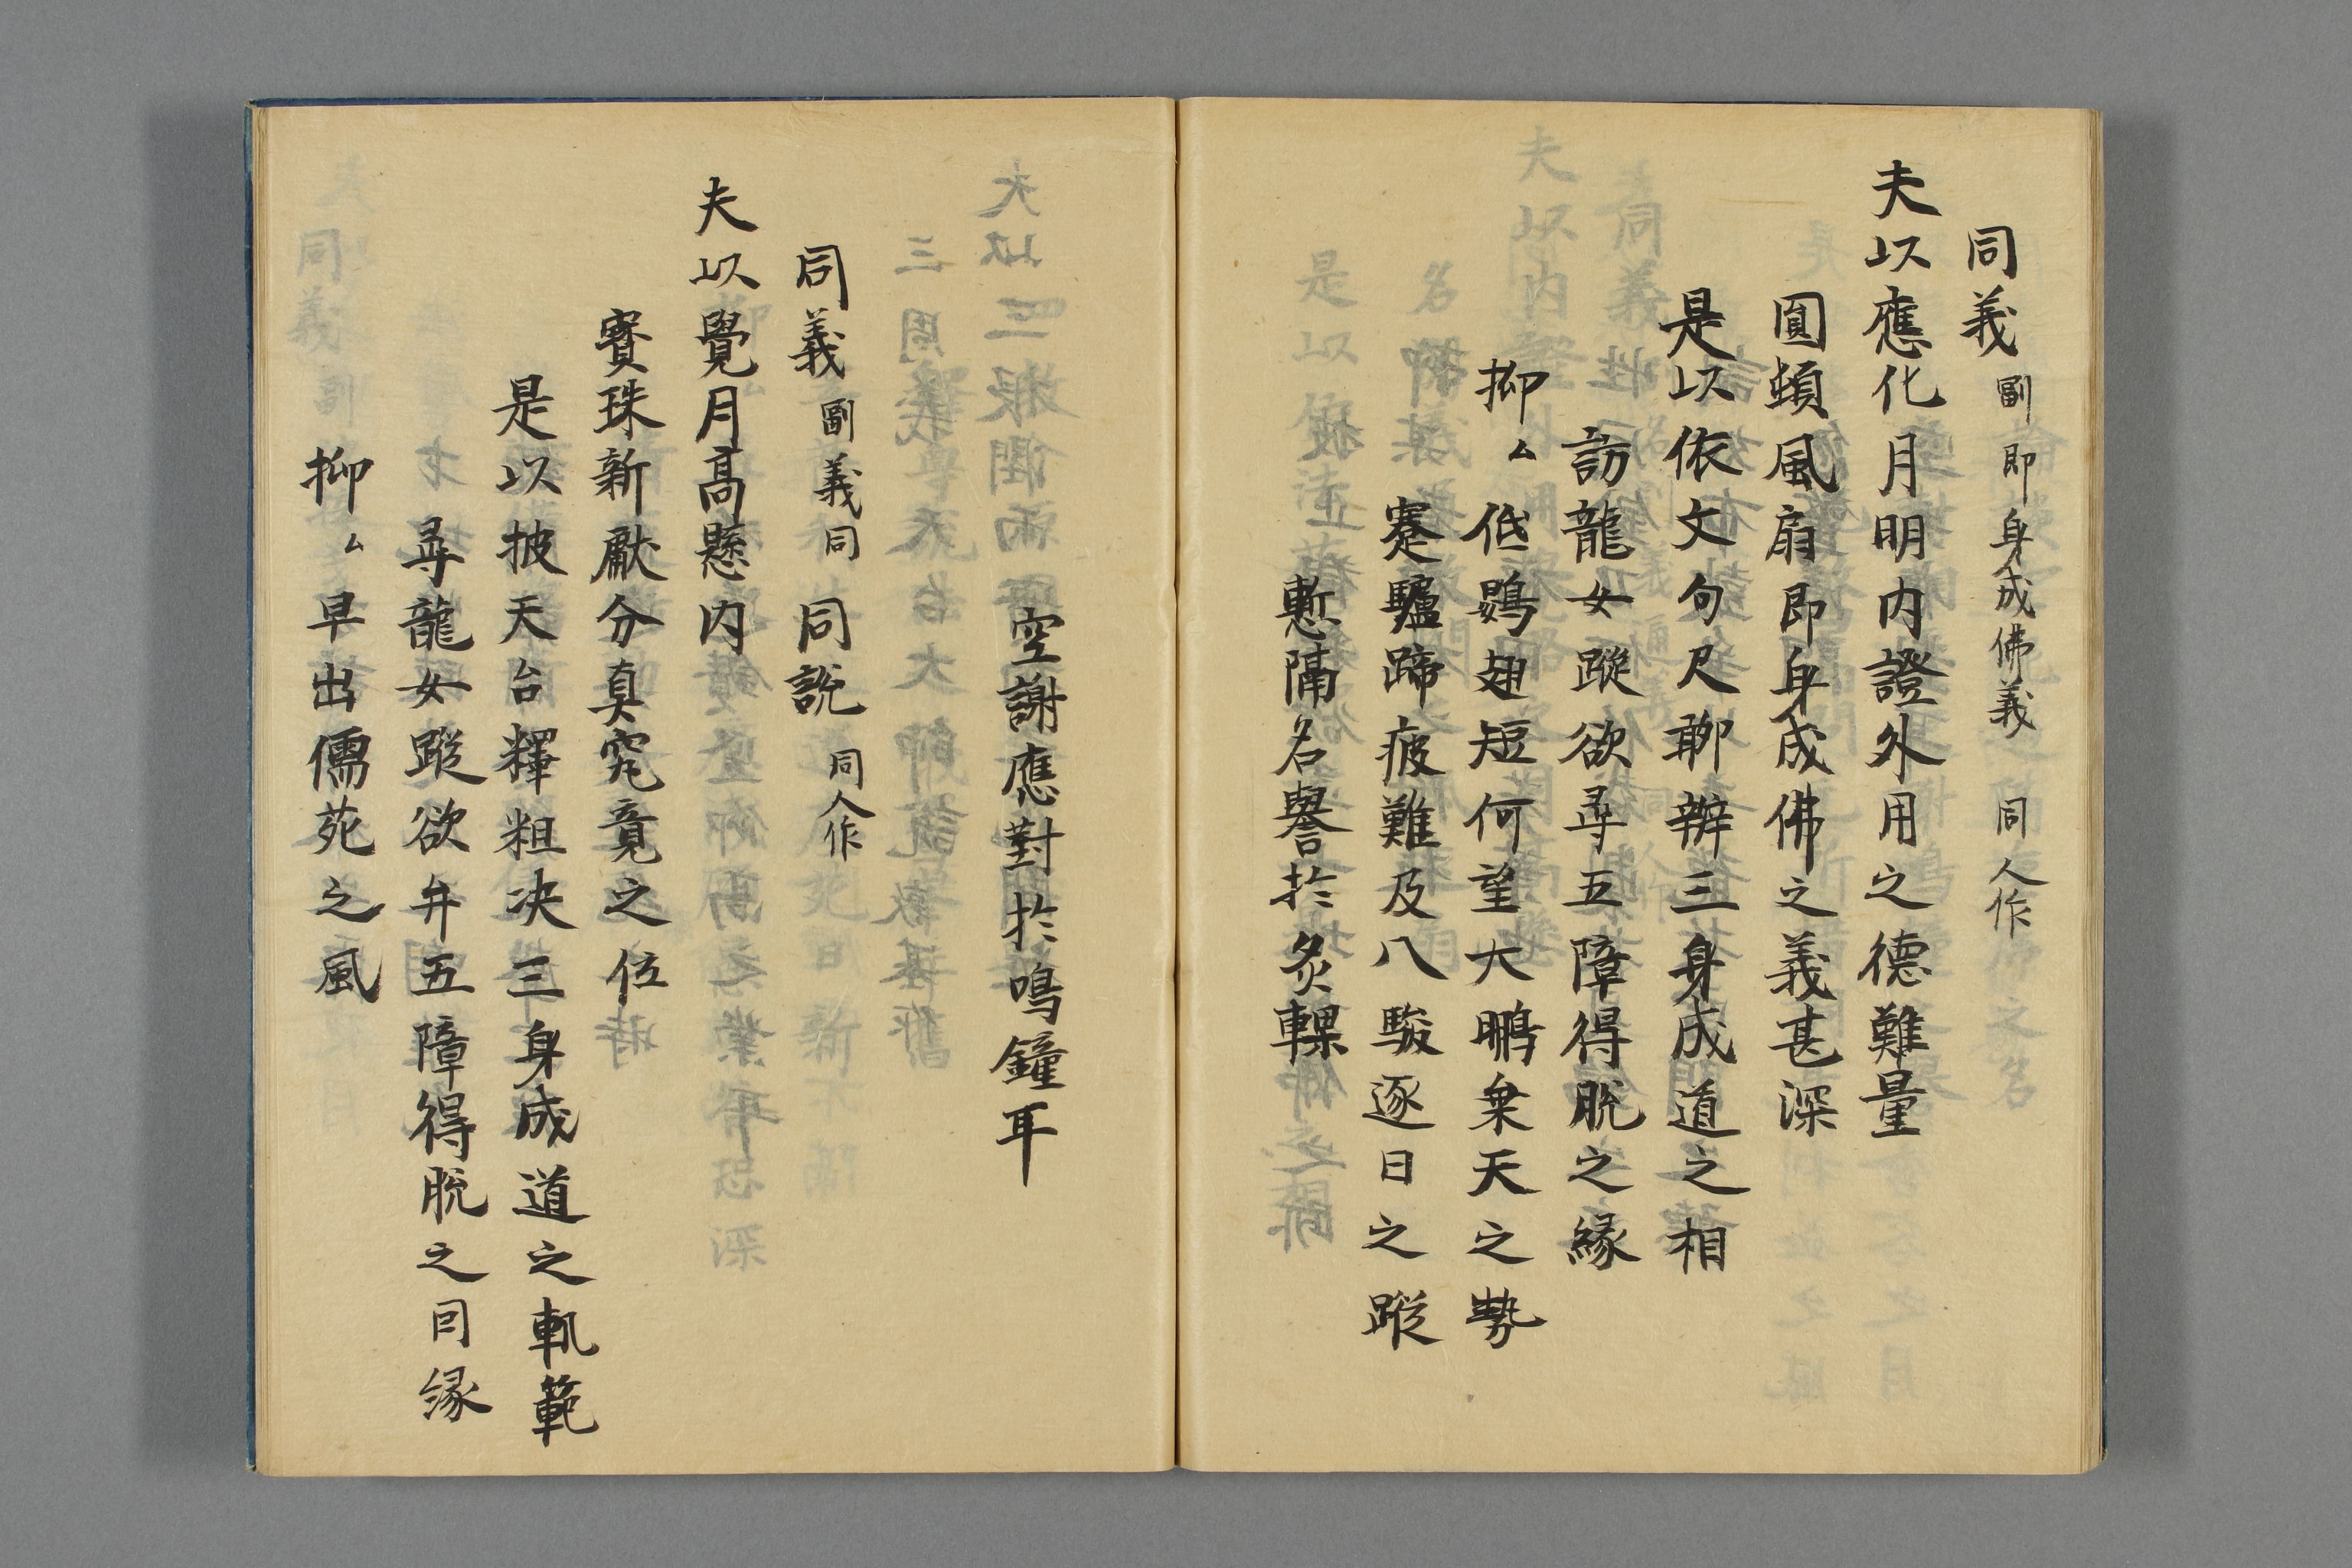 同義 副即身成佛義 同人作
夫以應化月明内證外用之德難量
圓頓風扇即身成佛之義甚深
是以依文句尺聊辨三身成道之相
訪龍女蹤欲尋五障得脱之縁
抑ム低鷃翅短何望大鵬垂天之勢
蹇驢蹄疲難及八駿逐日之蹤
慙隔名譽於炙輠
空謝應對於鳴鐘耳
同義 副義同 同説 同人作
夫以覺月高懸内
寳珠新獻分真究竟之位
是以披天台釋粗决三身成道之軌範
尋龍女蹤欲弁五障得脱之因縁
抑ム早出儒苑之風